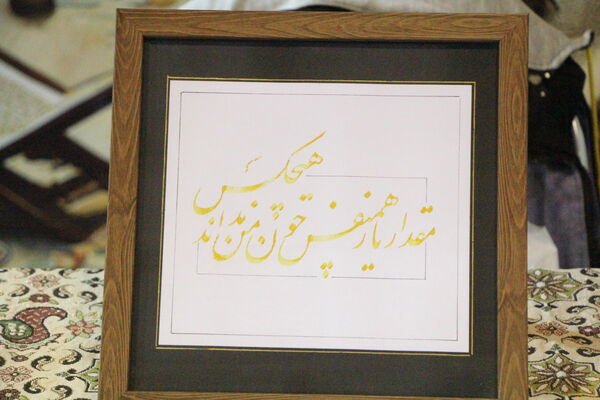 مقدار یار همنفس چون من نداند
هیچکس